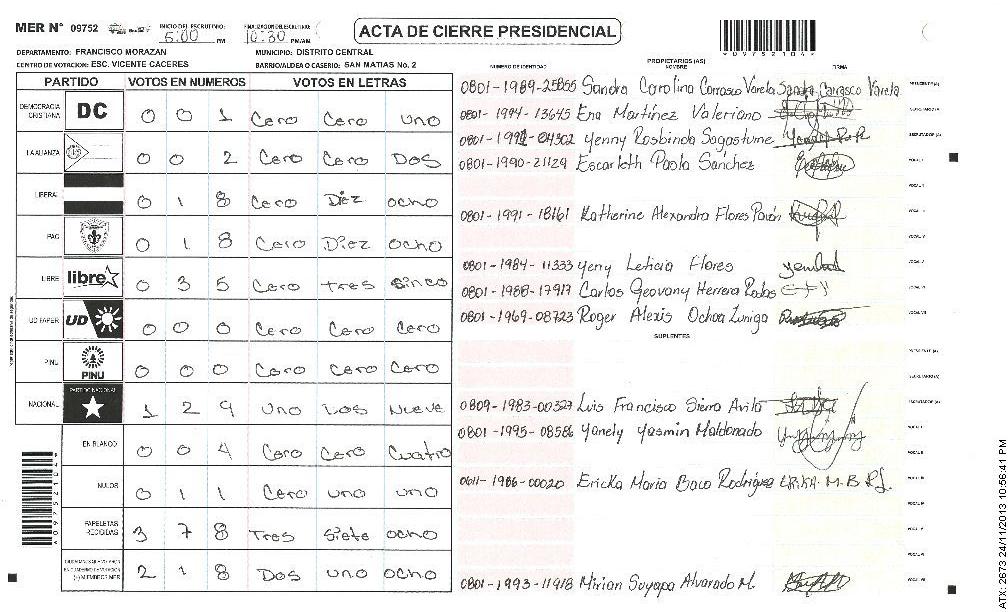 MER N° 09752 INICIO DEL ESCRUTINIO: 5:00 PM FINALIZACION DEL ESCRUTINIO: 10:30 PM/AM ACTA DE CIERRE PRESIDENCIAL
DEPARTAMENTO: FRANCISCO MORAZAN MUNICIPIO: DISTRITO CENTRAL
CENTRO DE VOTACION: ESC. VICENTE CACERES BARRIO/ALDEA O CASERIO: SAN MATIAS No. 2
PARTIDO VOTOS EN NUMEROS VOTOS EN LETRAS
DEMOCRACIA CRISTIANA DC 0 0 1 Cero Cero uno
LA ALIANZA 0 0 2 Cero Cero Dos
LIBERAL 0 1 8 Cero Diez ocho
PAC 0 1 8 Cero Diez ocho
LIBRE libre 0 3 5 Cero Tres Sinco
UD FAPER UD 0 0 0 Cero Cero Cero
PINU PINU 0 0 0 Cero Cero Cero
NACIONAL PARTIDO NACIONAL 1 2 9 uno Dos Nueve
EN BLANCO 0 0 4 Cero Cero Cuatro
NULOS 0 1 1 Cero uno uno
PAPELETAS RECIBIDAS 3 7 8 Tres Siete ocho
2 1 8 Dos uno ocho
PROPIETARIOS (AS)
NUMERO DE IDENTIDAD NOMBRE FIRMA
0801-1989-25855 Sandra Carolina Carrasco Varela Sandra Carrasco Varela PRESIDENTE (A)
0801-1994-13645 Ena Martínez Valeriano SECRETARIO (A)
Yenny Rosbinda Sagastume ESCRUTADOR (A)
0801-1990-21129 Escarleth Paola Sánchez VOCAL I
VOCAL II
0801-1991-18161 Katherine Alexandra Flores Pavón VOCAL III
VOCAL IV
0801-1984-11333 Yeny Leticia Flores VOCAL V
0801-1988-17917 Carlos Geovany Herrera Rodas VOCAL VI
0801-1969-08723 Roger Alexis Ochoa Zuniga VOCAL VII
SUPLENTES
PRESIDENTE (A)
SECRETARIO (A)
0809-1983-00327 Luis Francisco Sierra Avila ESCRUTADOR (A)
0801-1995-08586 Yanely Yasmin Maldonado VOCAL I
VOCAL II
0611-1986-00020 Ericka Maria Baca Rodríguez ERIKA M. B R VOCAL III
VOCAL IV
VOCAL V
VOCAL VI
0801-1993-11918 Mirian Suyapa Alvarado M. VOCAL VII
09752104
09752104
ATX: 2673 24/11/2013 10:56:41 PM